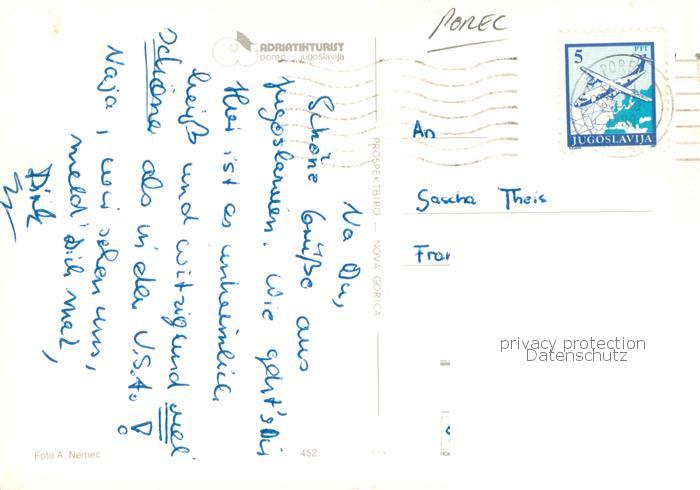 POREC
ADRIATIKTURIST
poreč - jugoslavija
5
PTT
JUGOSLAVIJA
PROSPEKTBIRO — NOVA GORICA
Na Du,
Schöne Grüße aus
Jugoslawien. Wie geht's Dir
Hier ist es unheimlich
heiß und witzig und viel
Schöner als in der U.S.A. !
Naja, wir sehen uns,
meld' Dich mal,
Dirk
An
Sascha Theis
Fran
privacy protection
Datenschutz
Foto A. Nemec
452